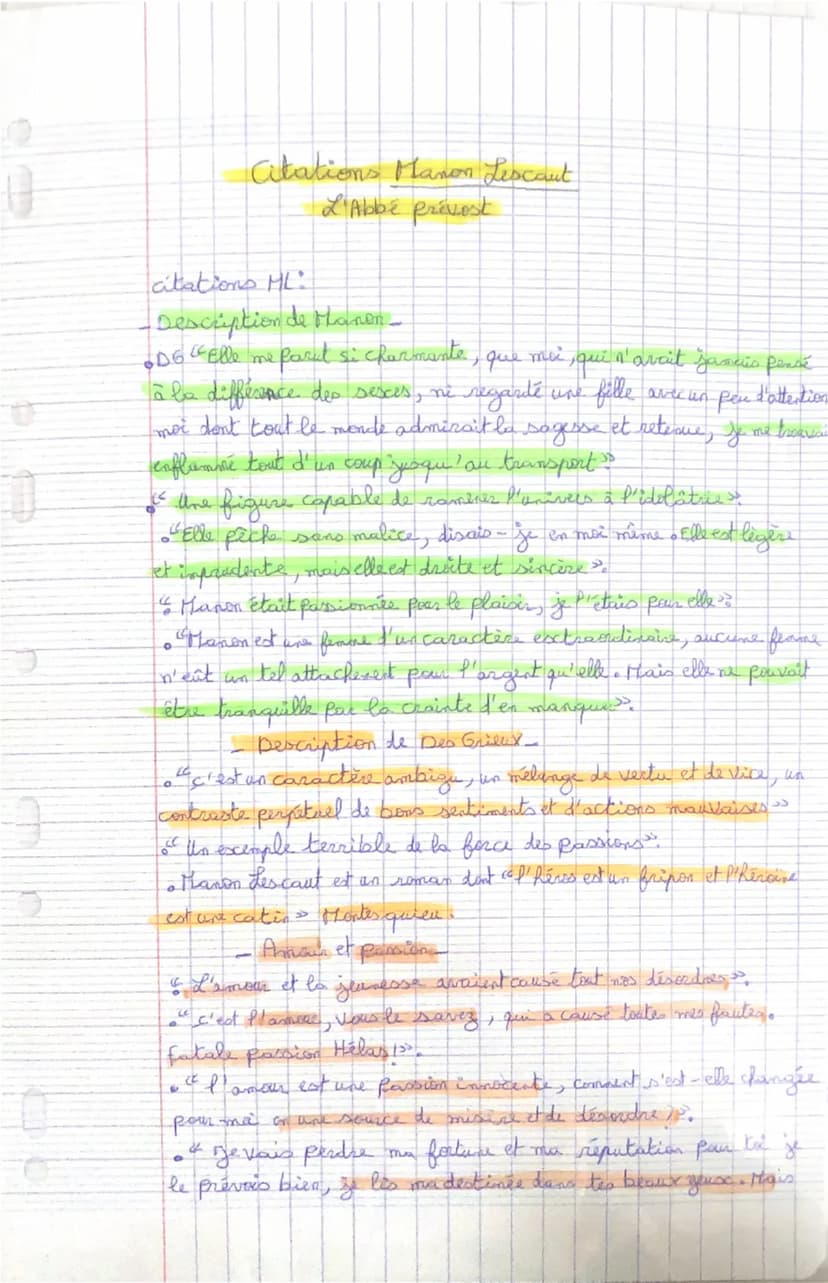 Citations Manon Lescaut
L'Abbé prévost
citations ML:
- Description de Manon -
• DG "Elle me parut si charmante, que moi, qui n'avait jamais pensé
à la différence des sexes, ni regardé une fille avec un peu d'attention
moi dont tout le monde admirait la sagesse et retenue, je me trouvai
enflammé tout d'un coup jusqu'au transport"
• "Une figure capable de ramener l'univers à l'idolâtrie".
• "Elle pêche sans malice, disais-je en moi même. Elle est légère
et inprudente, mais elle est droite et sincère".
• "Manon était passionnée pour le plaisir, je l'étais pour elle"
• "Manon est une femme d'un caractère extraordinaire, aucune femme
n'eût un tel attachement pour l'argent qu'elle. Mais elle ne pouvait
être tranquille par la crainte d'en manque".
- Description de Des Grieux -
• "c'est un caractère ambigu, un mélange de vertu et de vice, un
contraste perpétuel de bons sentiments et d'actions mauvaises"
• "Un exemple terrible de la force des passions".
• Manon Lescaut est un roman dont "l'héros est un fripon et l'héroïne
est une catin" Montesquieu.
- Amour et passion -
• "L'amour et la jeunesse avaient causé tout nos désordres".
• "c'est l'amour, vous le savez, qui a causé toutes mes fautes.
fatale passion Hélas!".
• "l'amour est une passion innocente, comment s'est-elle changée
pour moi en une source de misère et de désordre".
• "Je vais perdre ma fortune et ma réputation pour toi je
le prévois bien, je lis ma destinée dans tes beaux yeux. Mais